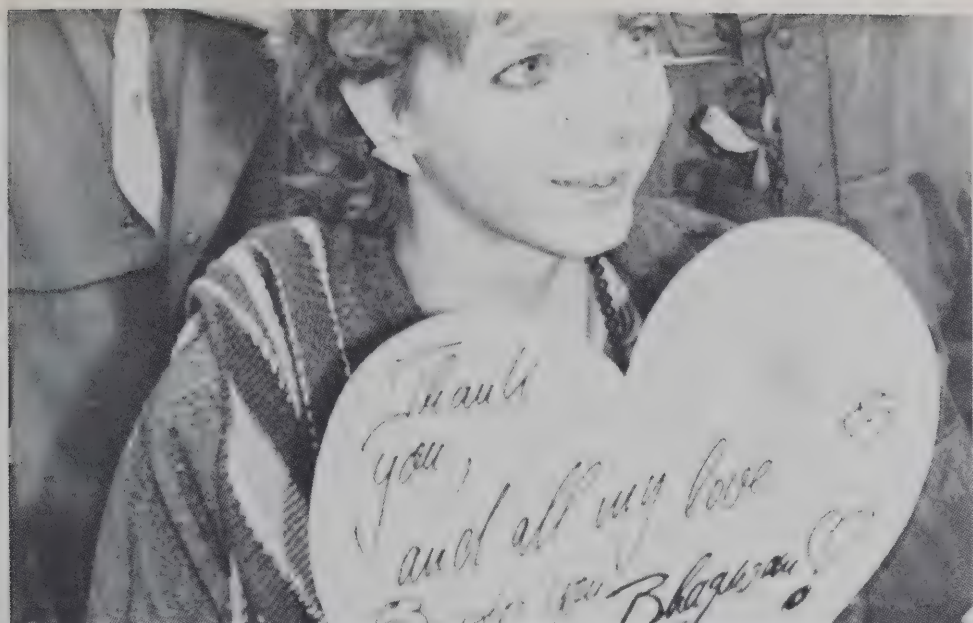 Thank
you,
and all my love
Bhagwan!